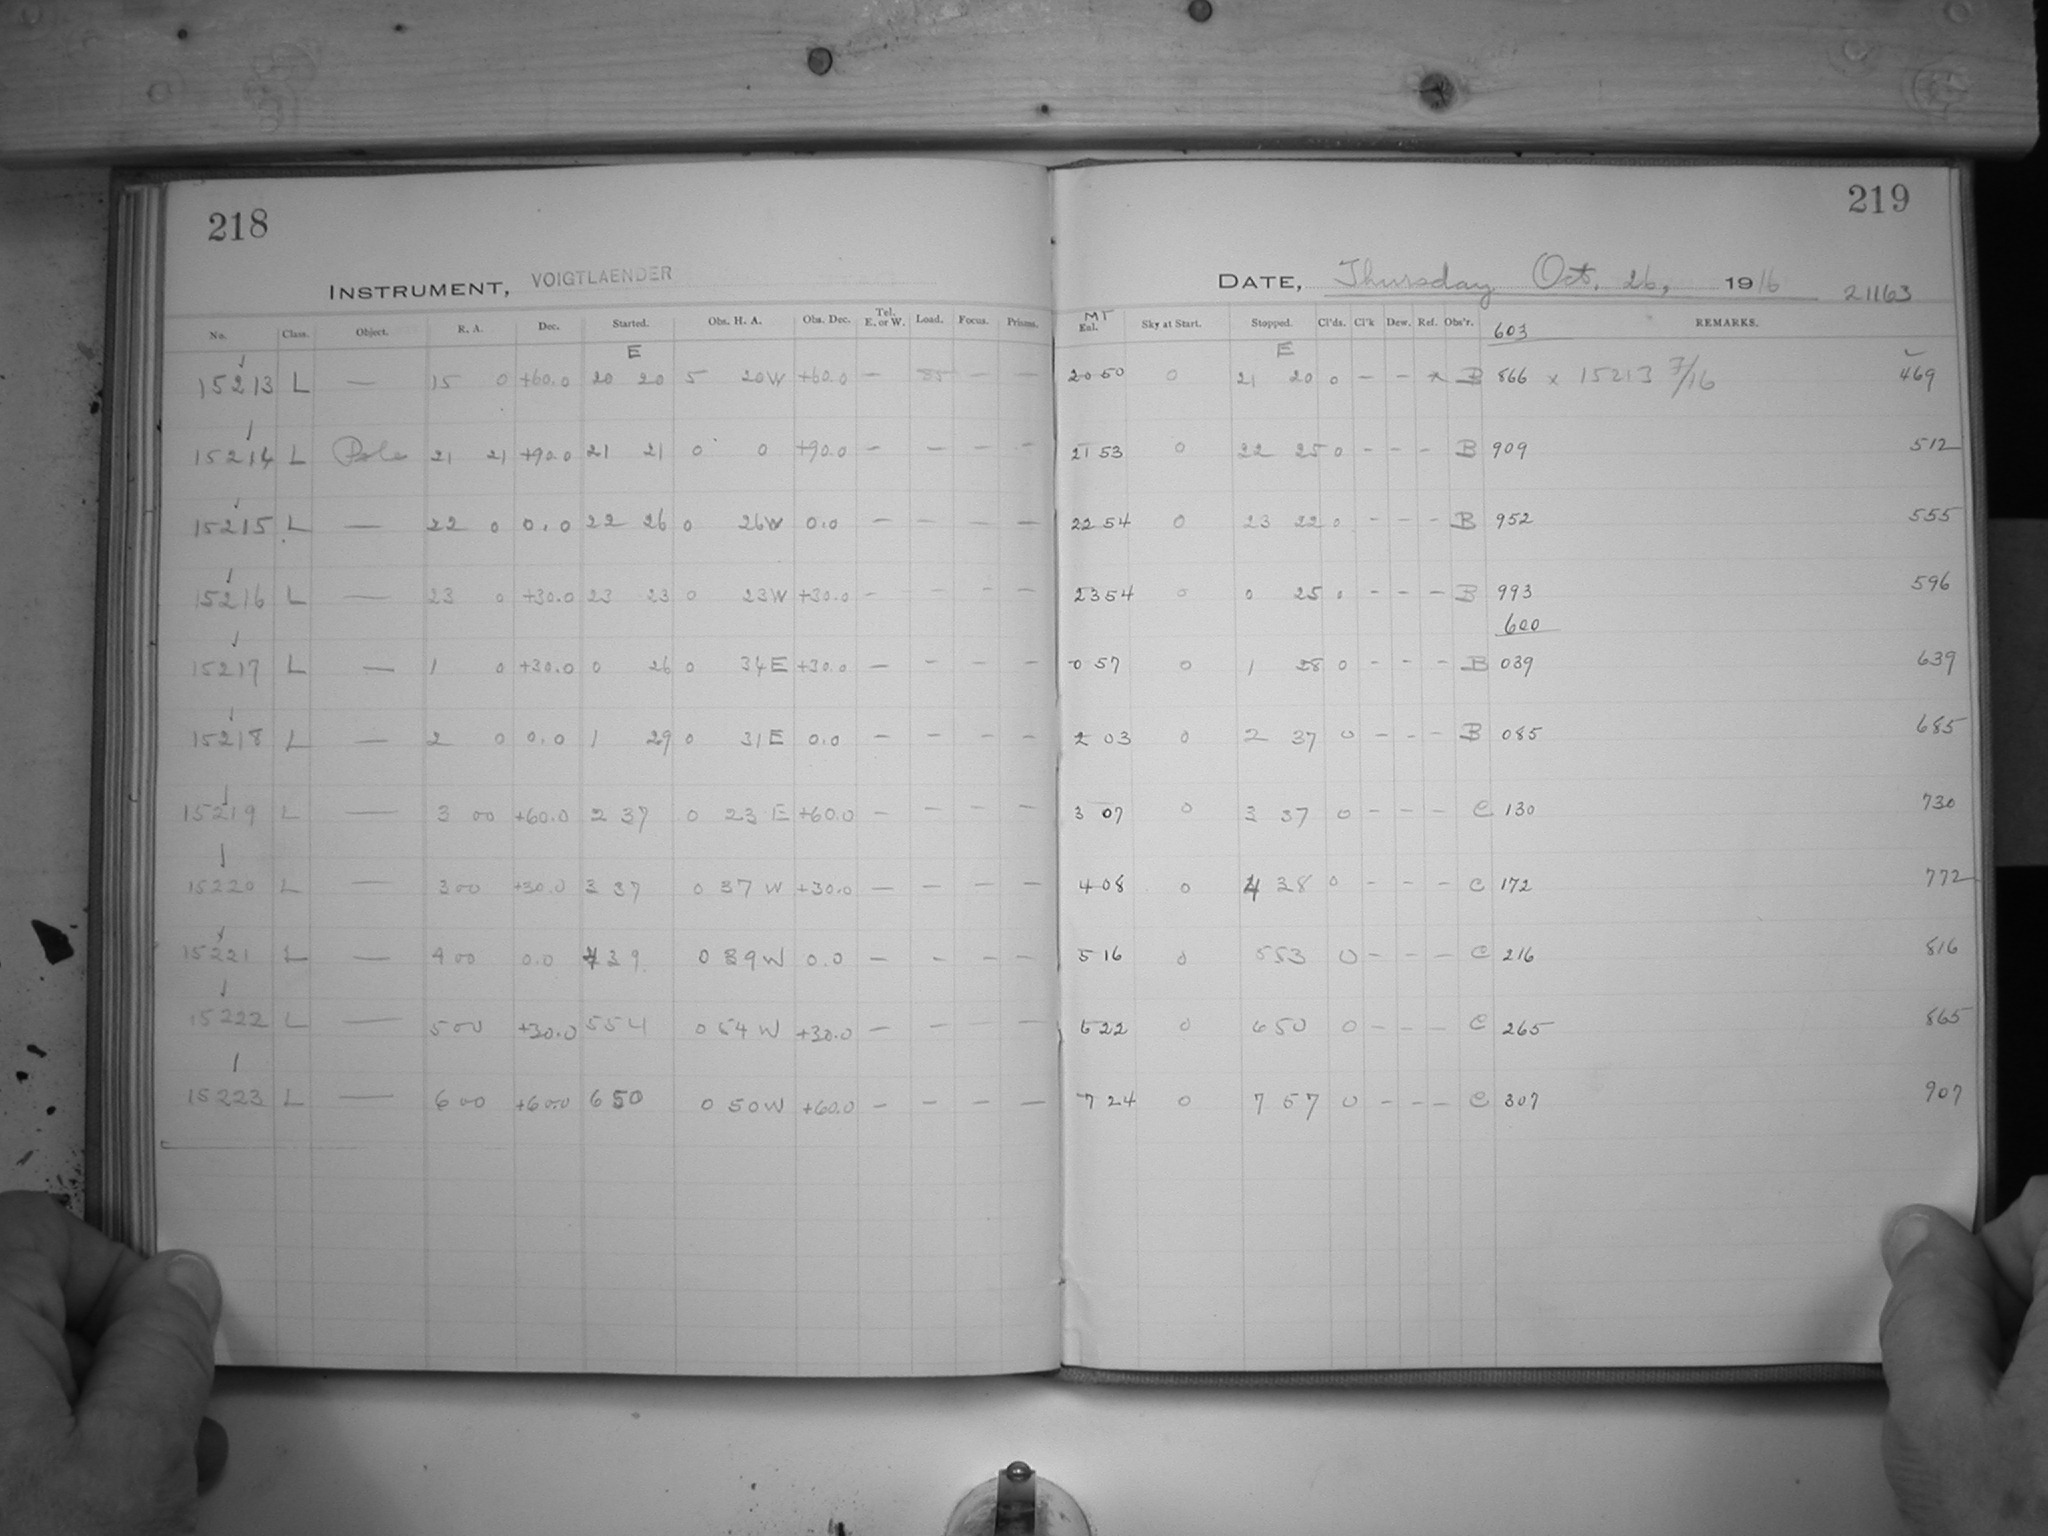 218
INSTRUMENT, VOIGTLAENDER
No. Class. Object. R. A. Dec. Started. Obs. H. A. Obs. Dec. Tel. E. or W. Load. Focus. Prisms.
E
15213 L — 15 0 +60.0 20 20 5 20W +60.0 — 85 — —
15214 L Pole 21 21 +90.0 21 21 0 0 +90.0 — — — —
15215 L — 22 0 0.0 22 26 0 26W 0.0 — — — —
15216 L — 23 0 +30.0 23 23 0 23W +30.0 — — — —
15217 L — 1 0 +30.0 0 26 0 34E +30.0 — — — —
15218 L — 2 0 0.0 1 29 0 31E 0.0 — — — —
15219 L — 3 00 +60.0 2 37 0 23 E +60.0 — — — —
15220 L — 3 00 +30.0 3 37 0 37 W +30.0 — — — —
15221 L — 4 00 0.0 4 39 0 39 W 0.0 — — — —
15222 L — 5 00 +30.0 5 54 0 54 W +30.0 — — — —
15223 L — 6 00 +60.0 6 50 0 50 W +60.0 — — — —
219
DATE, Thursday Oct. 26, 1916 21163
MT
Eal. Sky at Start. Stopped. Cl'ds. Cl'k Dew. Ref. Obs'r. 603 REMARKS.
E
20 50 0 21 20 0 — — x B 866 x 15213 7/16 469
21 53 0 22 25 0 — — — B 909 512
22 54 0 23 22 0 — — — B 952 555
23 54 0 0 25 0 — — — B 993 596
600
0 57 0 1 28 0 — — — B 039 639
2 03 0 2 37 0 — — — B 085 685
3 07 0 3 37 0 — — — C 130 730
4 08 0 4 38 0 — — — C 172 772
5 16 0 5 53 0 — — — C 216 816
6 22 0 6 50 0 — — — C 265 865
7 24 0 7 57 0 — — — C 307 907